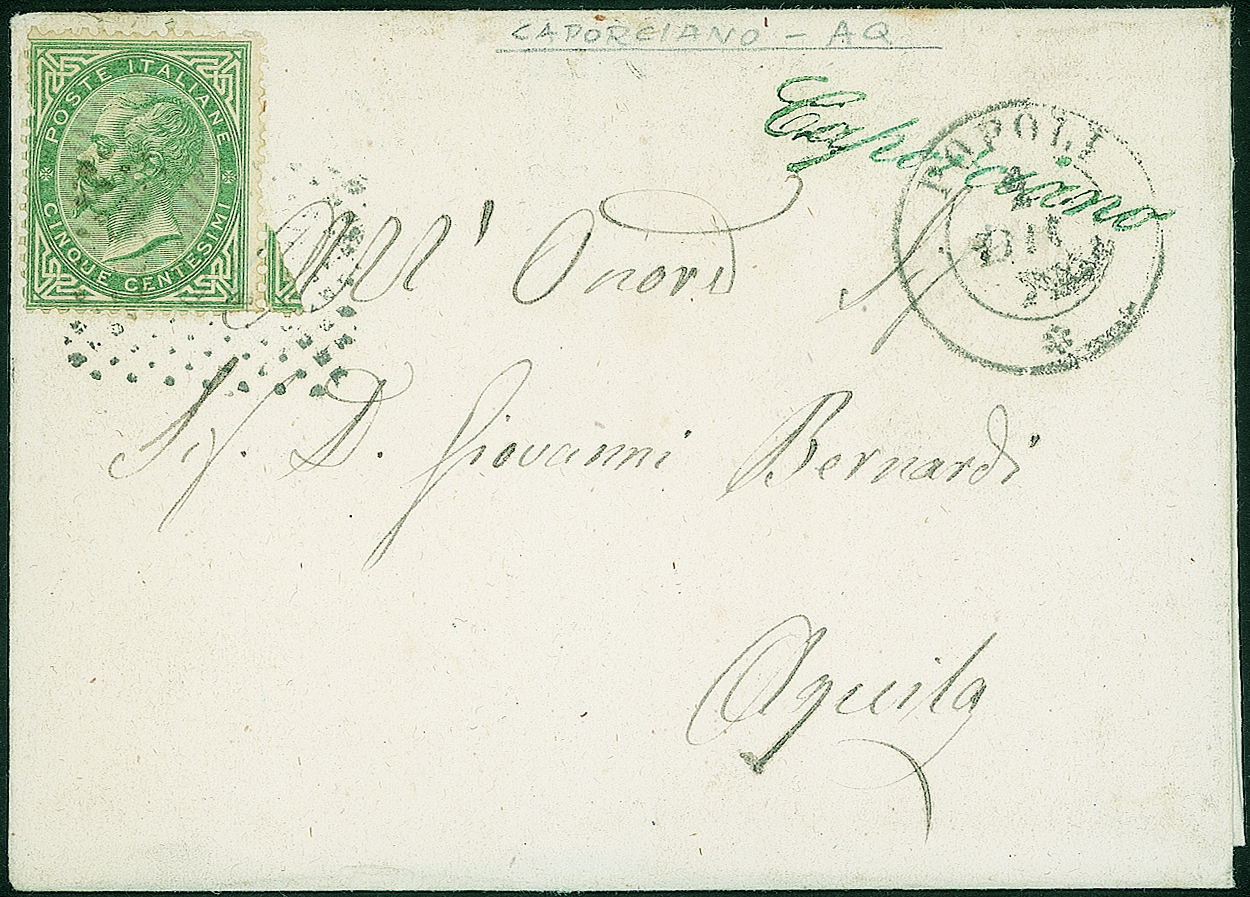 CAPORCIANO - AQ
POSTE ITALIANE
CINQUE CENTESIMI
Caporciano
POPOLI
DIC
All' Onord
Sig. D. Giovanni Bernardi
Aquila